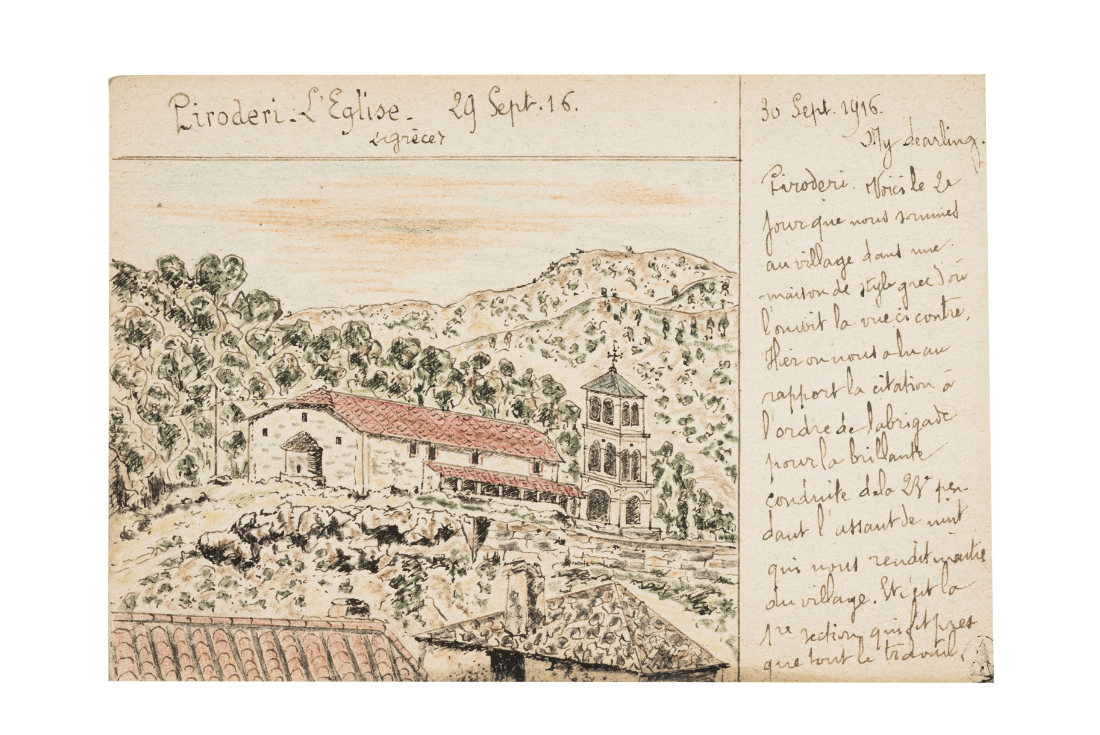 Piroderi - L'Eglise - 29 Sept. 16.
<grèce>
30 Sept. 1916.
My dearling.
Piroderi. Voici le 2e
jour que nous sommes
au village dans une
maison de style grec d'où
l'on voit la vue ci contre.
Hier on nous a lu au
rapport la citation à
l'ordre de la brigade
pour la brillante
conduite de la 23e pen-
dant l'assaut de nuit
qui nous rendit maitre
du village. Et c'est la
1re section qui fit pres
que tout le travail.